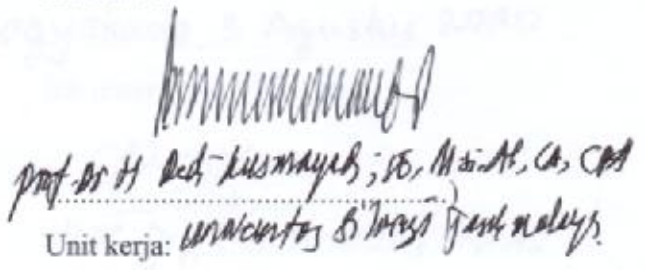 Prof. Dr H Dedi Kusmayadi, SE, M.Si. Ak, CA, CPA
Unit kerja: Universitas Siliwangi Tasikmalaya